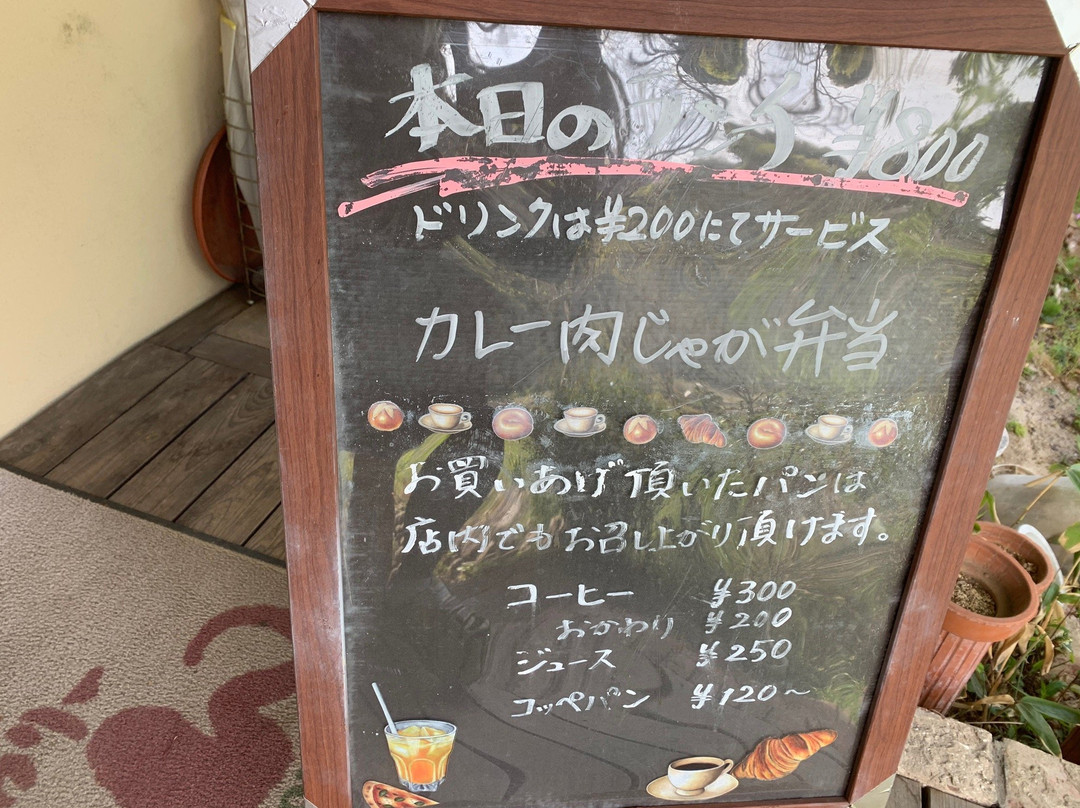 本日のランチ ¥800
ドリンクは¥200にてサービス
カレー肉じゃが弁当
お買いあげ頂いたパンは
店内でもお召し上がり頂けます。
コーヒー ¥300
おかわり ¥200
ジュース ¥250
コッペパン ¥120～